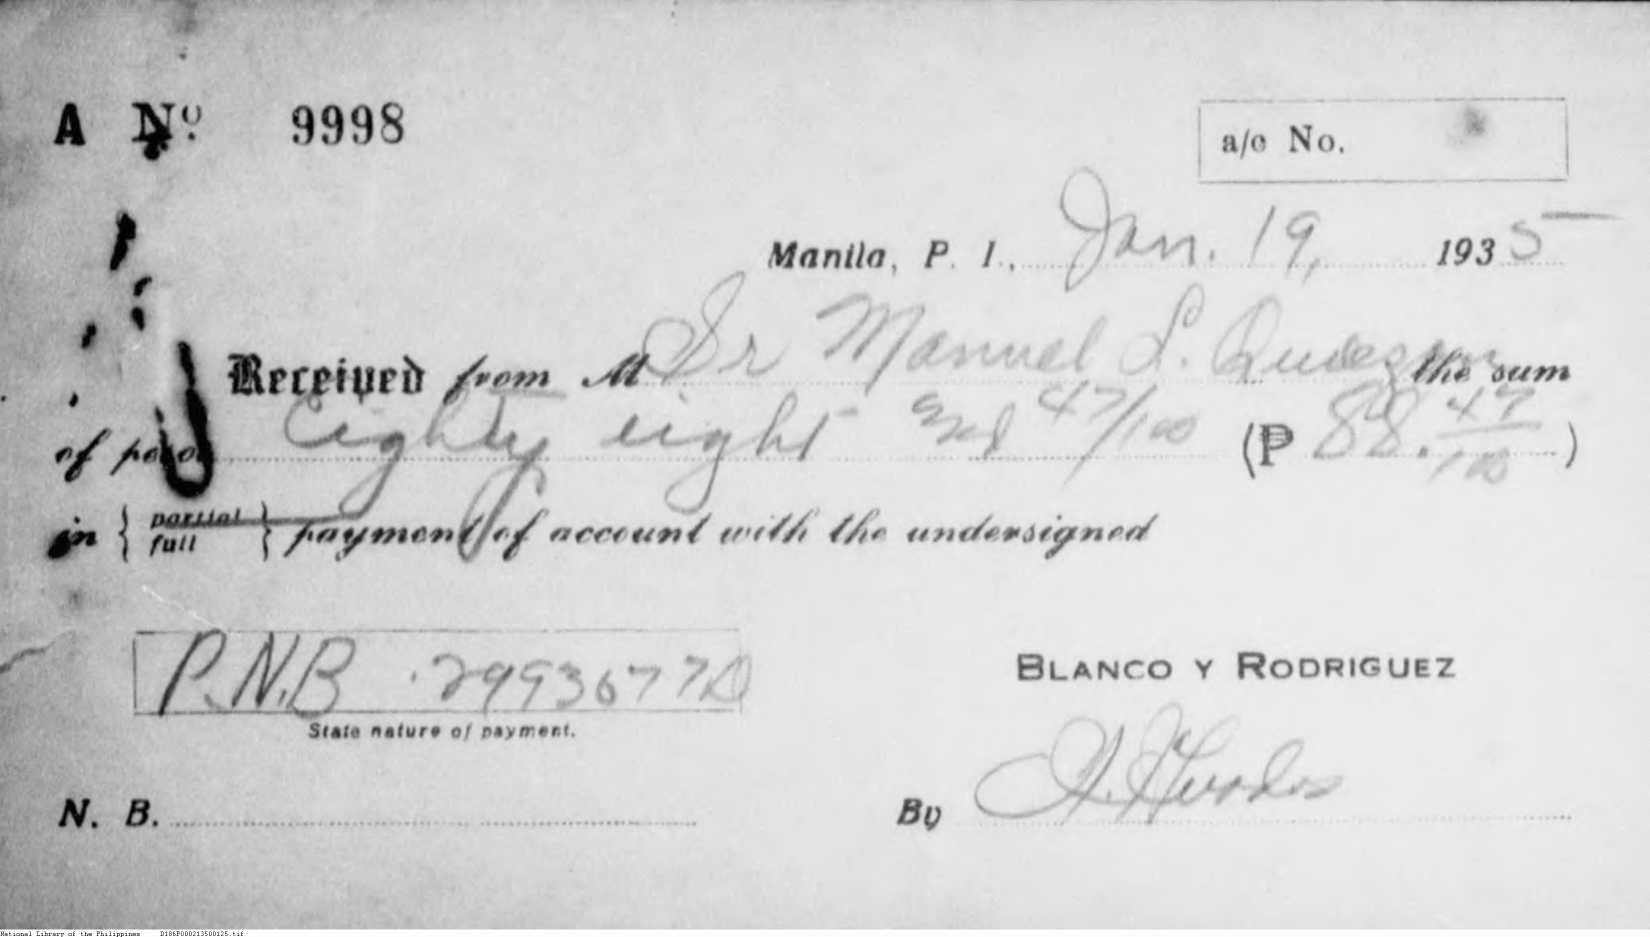 A Nº 9998
a/c No.
Manila, P. I., Jan. 19, 1935
Received from M Sr Manuel L. Quezon the sum
of pesos Eighty eight and 47/100 (₱ 88. 47/100 )
in { partial full } payment of account with the undersigned
P.N.B 2993677D
State nature of payment.
BLANCO Y RODRIGUEZ
N. B.
By
National Library of the Philippines D186P000213500125.tif